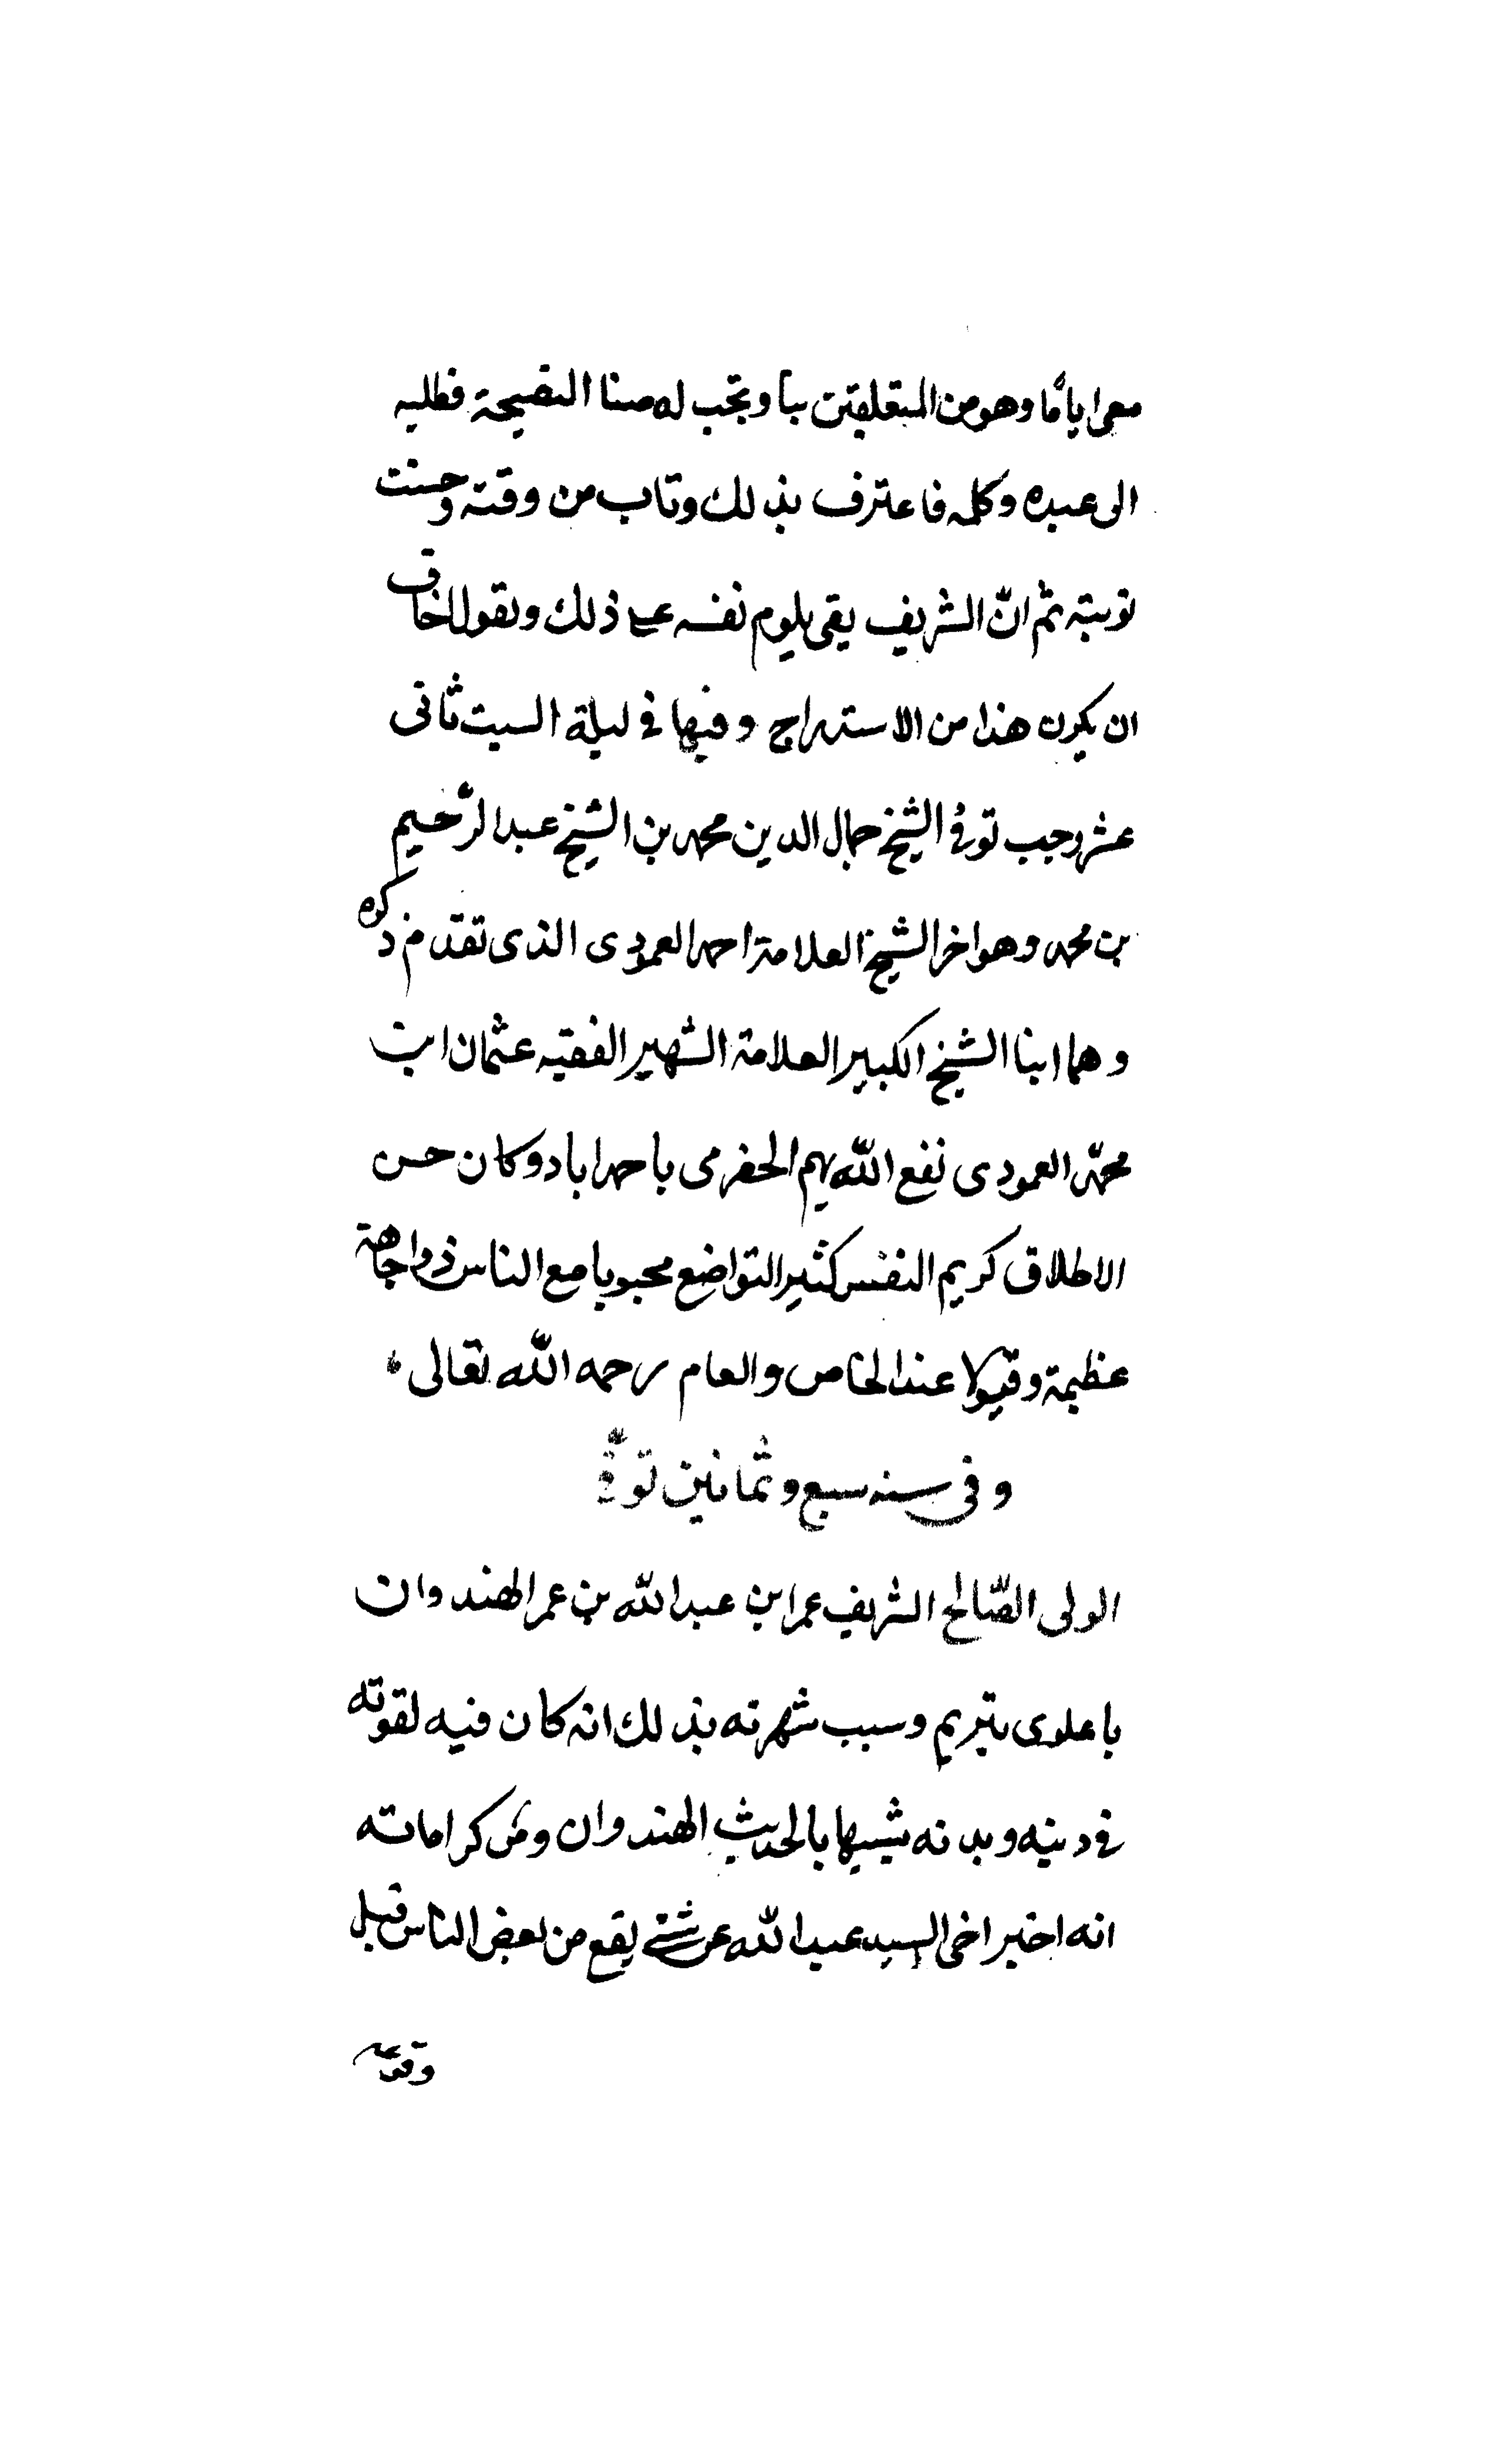 معى اياما وهو من المتعلقين بنا وتجب له منا النصيحة فطلبه
الى عبده وكلمه فاعترف بذلك وتاب من وقته وحسنت
توبته ثم انّ الشريف بقى يلوم نفسه على ذلك ويقول اخاف
ان يكون هذا من الاستدراج وفيها فى ليلة السبت ثانى
عشر رجب توفى الشيخ جمال الدين محمد بن الشيخ عبد الرّحيم
بن محمد وهو اخر الشيخ العلامة احمد العمودى الذى تقدم ذكره
وهما ابنا الشيخ الكبير العلامة الشهير الفقيه عثمان ابن
محمّد العمودى نفع اللّه بهم الحضرمى باحمداباد وكان حسن
الاطلاق كريم النفس كثير التواضع محبوبا مع الناس ذو اجاهة
عظيمة وقبولا عند الخاص والعام رحمه اللّه تعالى
وفى سنه سبع وثمانين توفى
الولى الصّالح الشريف عمر ابن عبد اللّه بن عمر الهندوان
باعلوى بتريم وسبب شهرته بذلك انه كان فيه لقوته
فى دينه وبدنه شبيها بالحديث الهندوان ومن كراماته
انه اخبر اخى السيد عبد اللّه عن شئ يقع من بعض الناس قبل
وقوعه